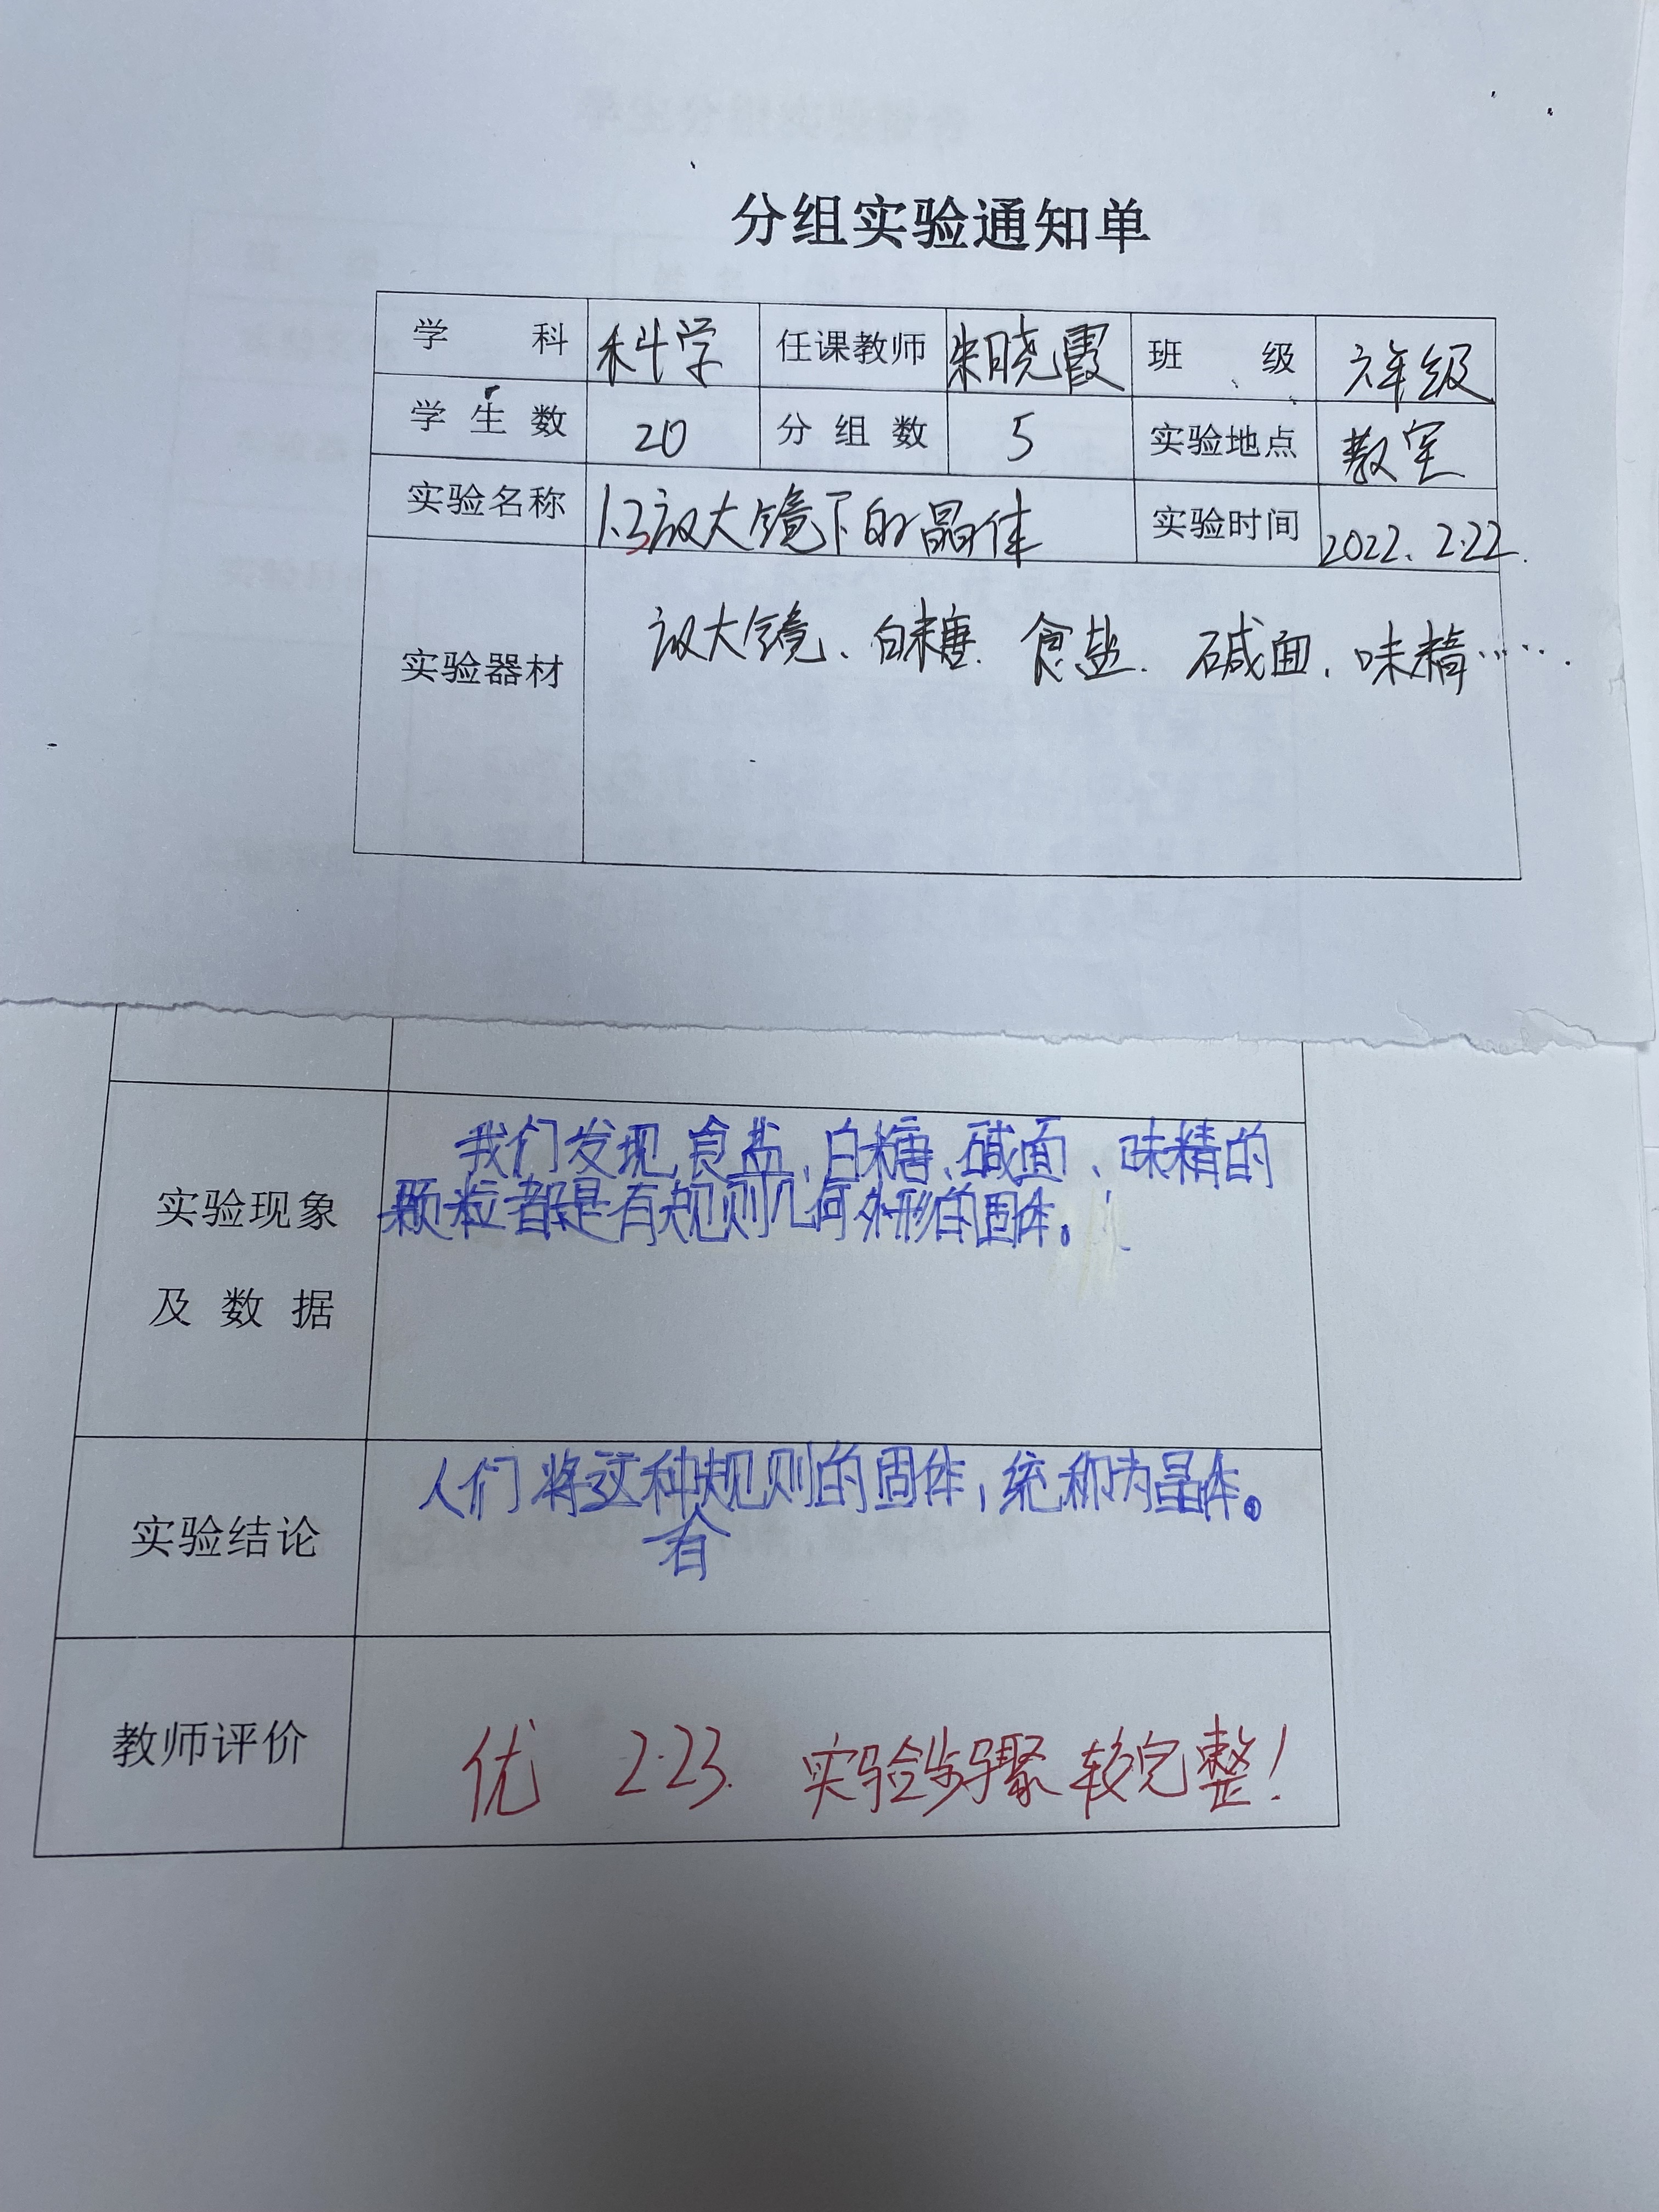 分组实验通知单
学 科 科学 任课教师 朱晓霞 班 级 六年级
学生数 20 分组数 5 实验地点 教室
实验名称 1.3放大镜下的晶体 实验时间 2022.2.22.
实验器材 放大镜、白糖、食盐、碱面、味精……
实验现象
及数据
我们发现,食盐、白糖、碱面、味精的
颗粒都是有规则几何外形的固体。
实验结论
人们将这种有规则的固体,统称为晶体。
教师评价 优 2.23. 实验步骤较完整!